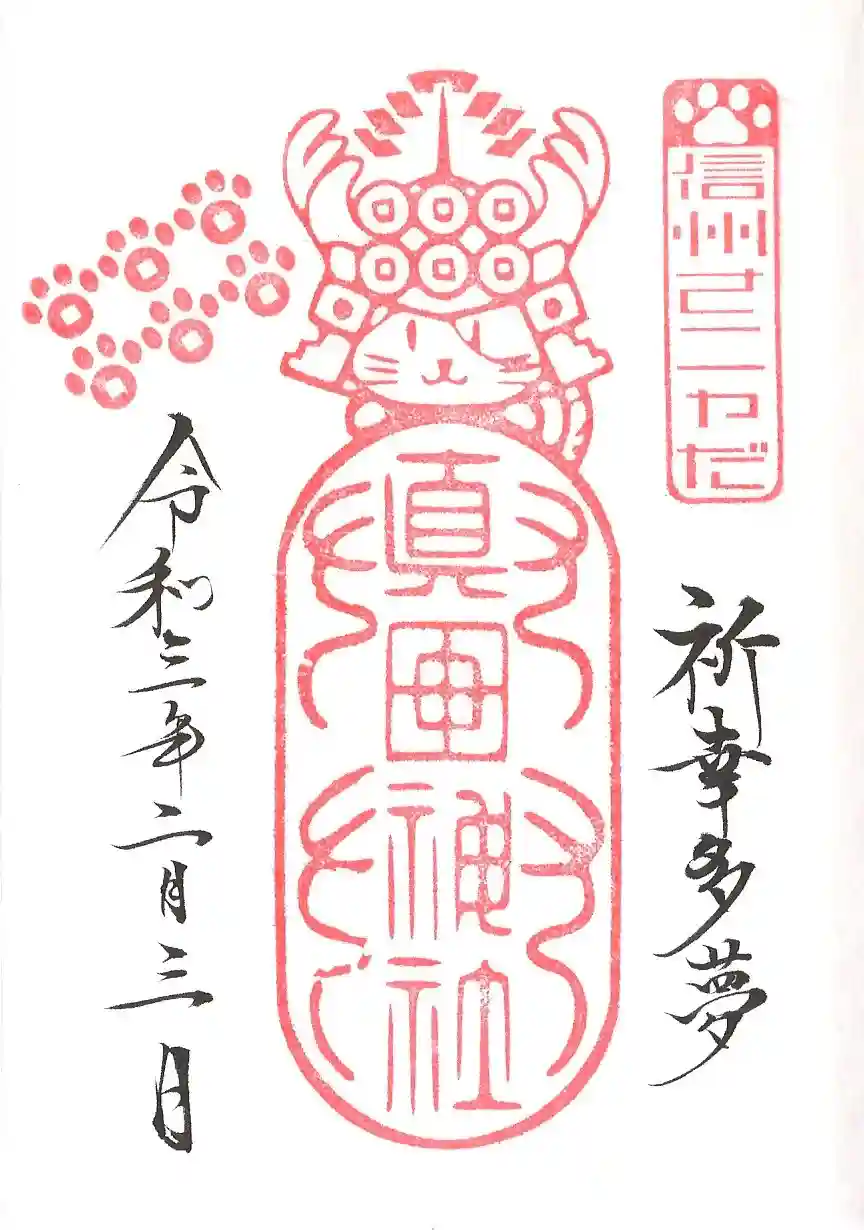 信州さニャだ
祈幸多夢
眞田神社
令和三年二月三日